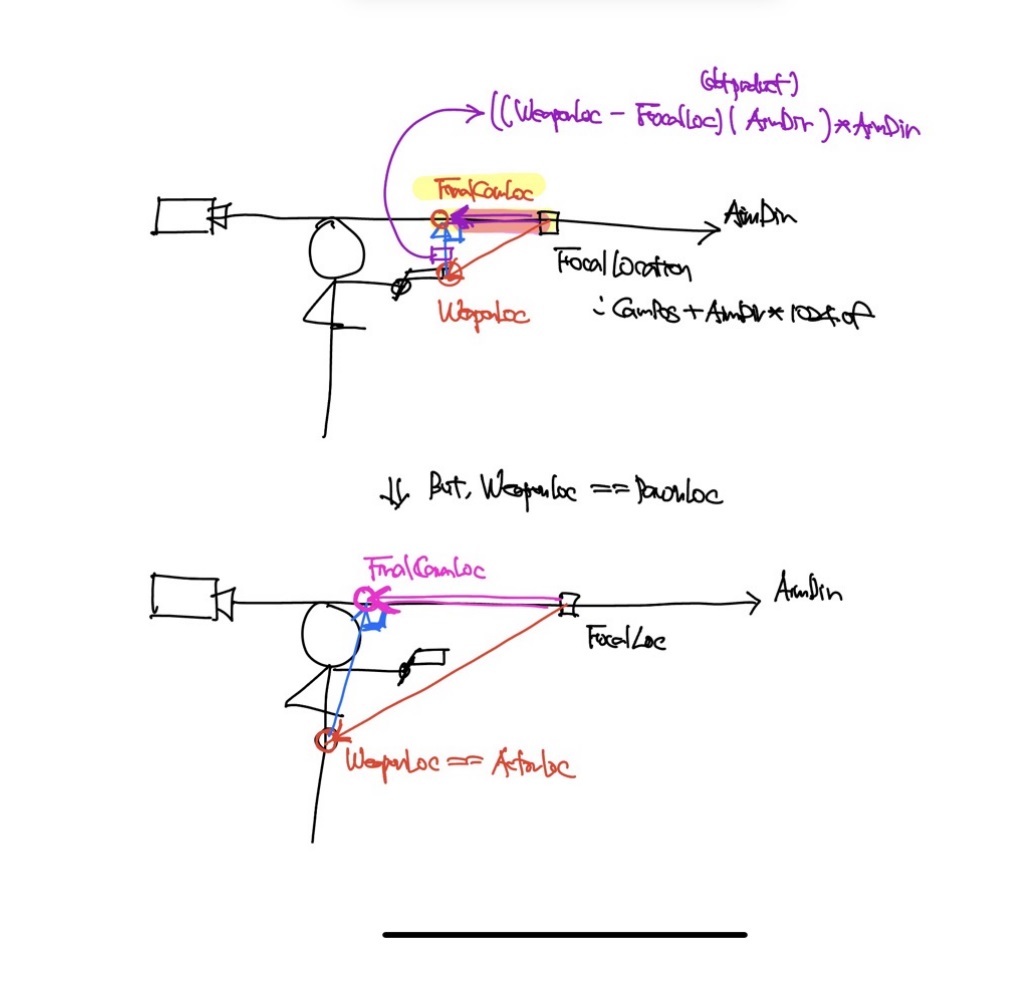 (dot product)
((WeaponLoc - FocalLoc) ( AimDir ) * AimDir
FinalCamLoc
AimDir
Focal Location
: CamPos + AimDir * 1024.0f
WeaponLoc
⇓ But, WeaponLoc == PawnLoc
FinalCamLoc
AimDir
FocalLoc
WeaponLoc == ActorLoc